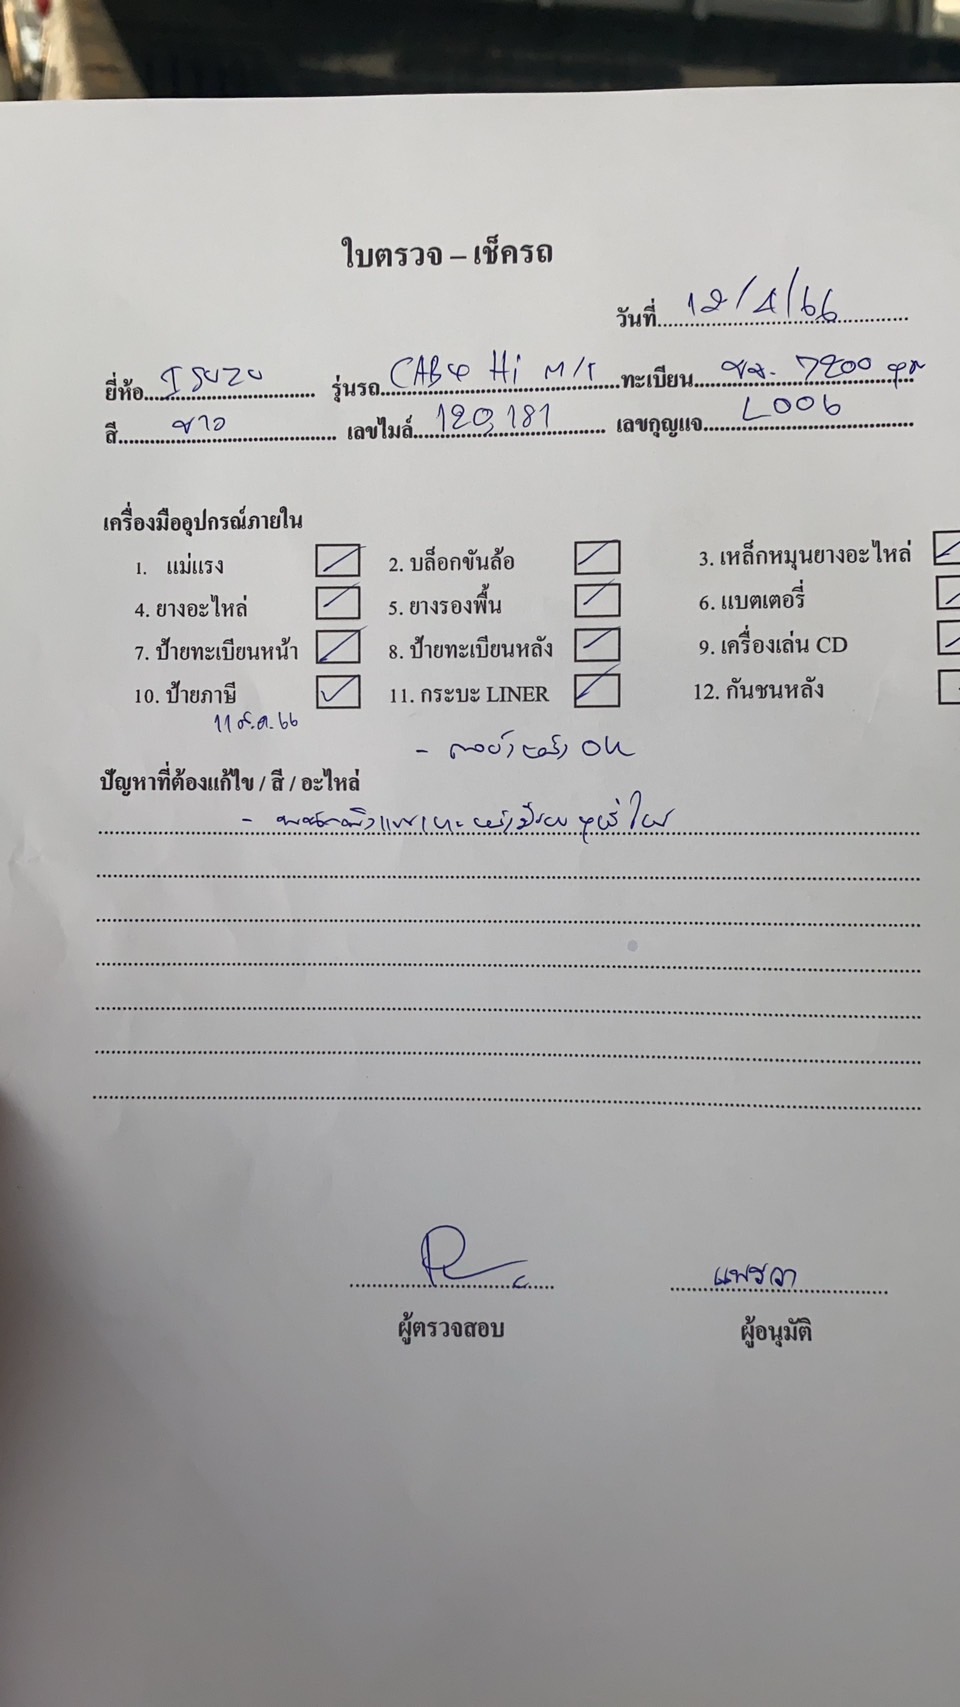 ใบตรวจ – เช็ครถ
วันที่ 12/4/66
ยี่ห้อ ISUZU รุ่นรถ CAB4 Hi M/T ทะเบียน 7200
สี ขาว เลขไมล์ 120,181 เลขกุญแจ L006
เครื่องมืออุปกรณ์ภายใน
1. แม่แรง 2. บล็อกขันล้อ 3. เหล็กหมุนยางอะไหล่
4. ยางอะไหล่ 5. ยางรองพื้น 6. แบตเตอรี่
7. ป้ายทะเบียนหน้า 8. ป้ายทะเบียนหลัง 9. เครื่องเล่น CD
10. ป้ายภาษี 11. กระบะ LINER 12. กันชนหลัง
66
- OK
ปัญหาที่ต้องแก้ไข / สี / อะไหล่
ผู้ตรวจสอบ ผู้อนุมัติ